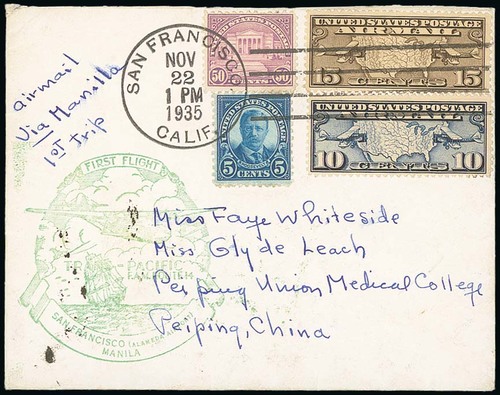 airmail
Via Manilla
1st Trip
SAN FRANCISCO
NOV
22
1 PM
1935
CALIF.
UNITED STATES POSTAGE
50 CENTS 50
UNITED STATES POSTAGE
5 5
CENTS
UNITED STATES POSTAGE
AIR MAIL
15 CENTS 15
UNITED STATES POSTAGE
AIR MAIL
10 CENTS 10
FIRST FLIGHT
PACIFIC
SAN FRANCISCO (ALAMEDA
MANILA
Miss Faye Whiteside
Miss Glyde Leach
Peiping Union Medical College
Peiping, China